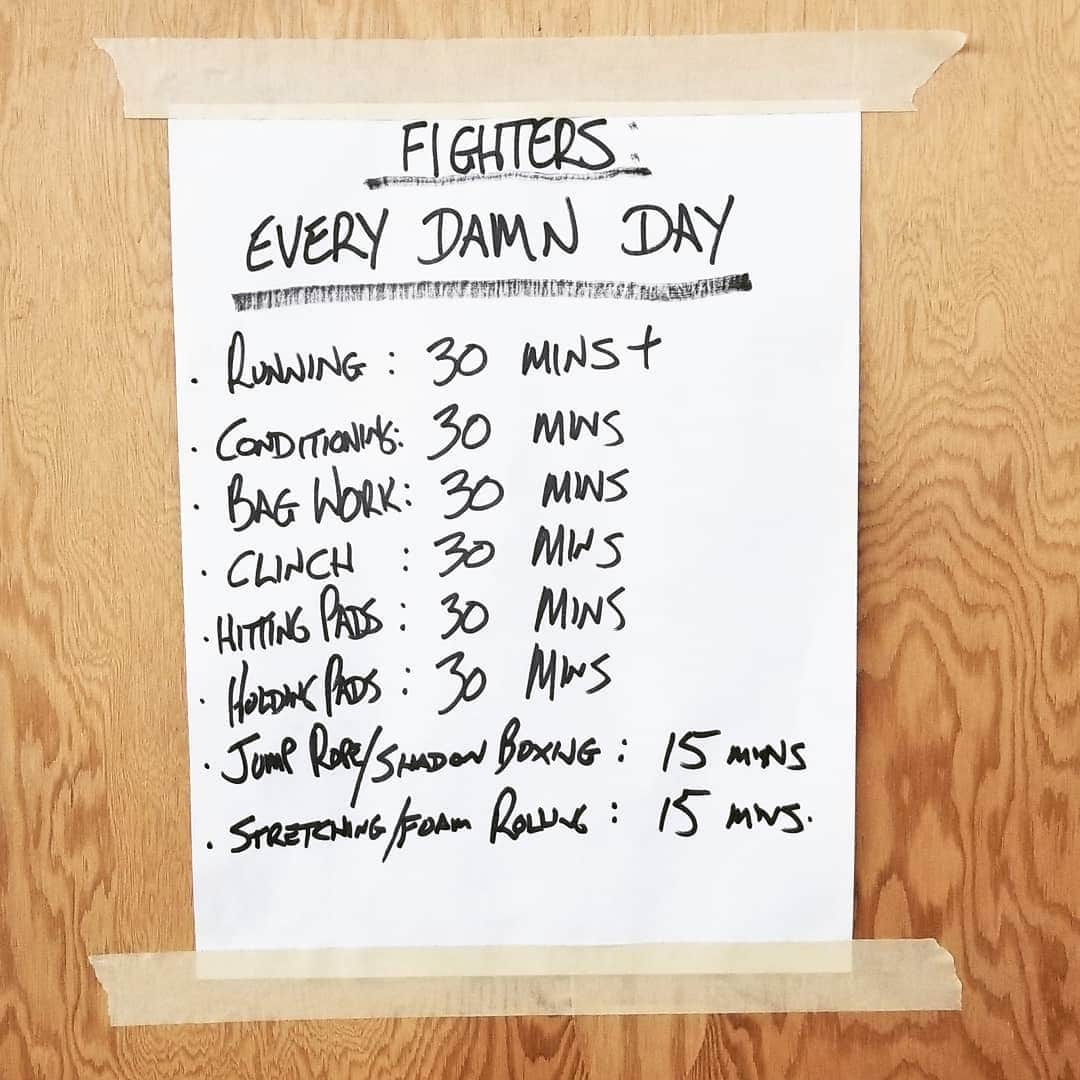 FIGHTERS:
EVERY DAMN DAY
· RUNNING : 30 MINS +
· CONDITIONING: 30 MINS
· BAG WORK: 30 MINS
· CLINCH : 30 MINS
· HITTING PADS : 30 MINS
· HOLDING PADS : 30 MINS
· JUMP ROPE/SHADOW BOXING : 15 MINS
· STRETCHING/FOAM ROLLING : 15 MINS.